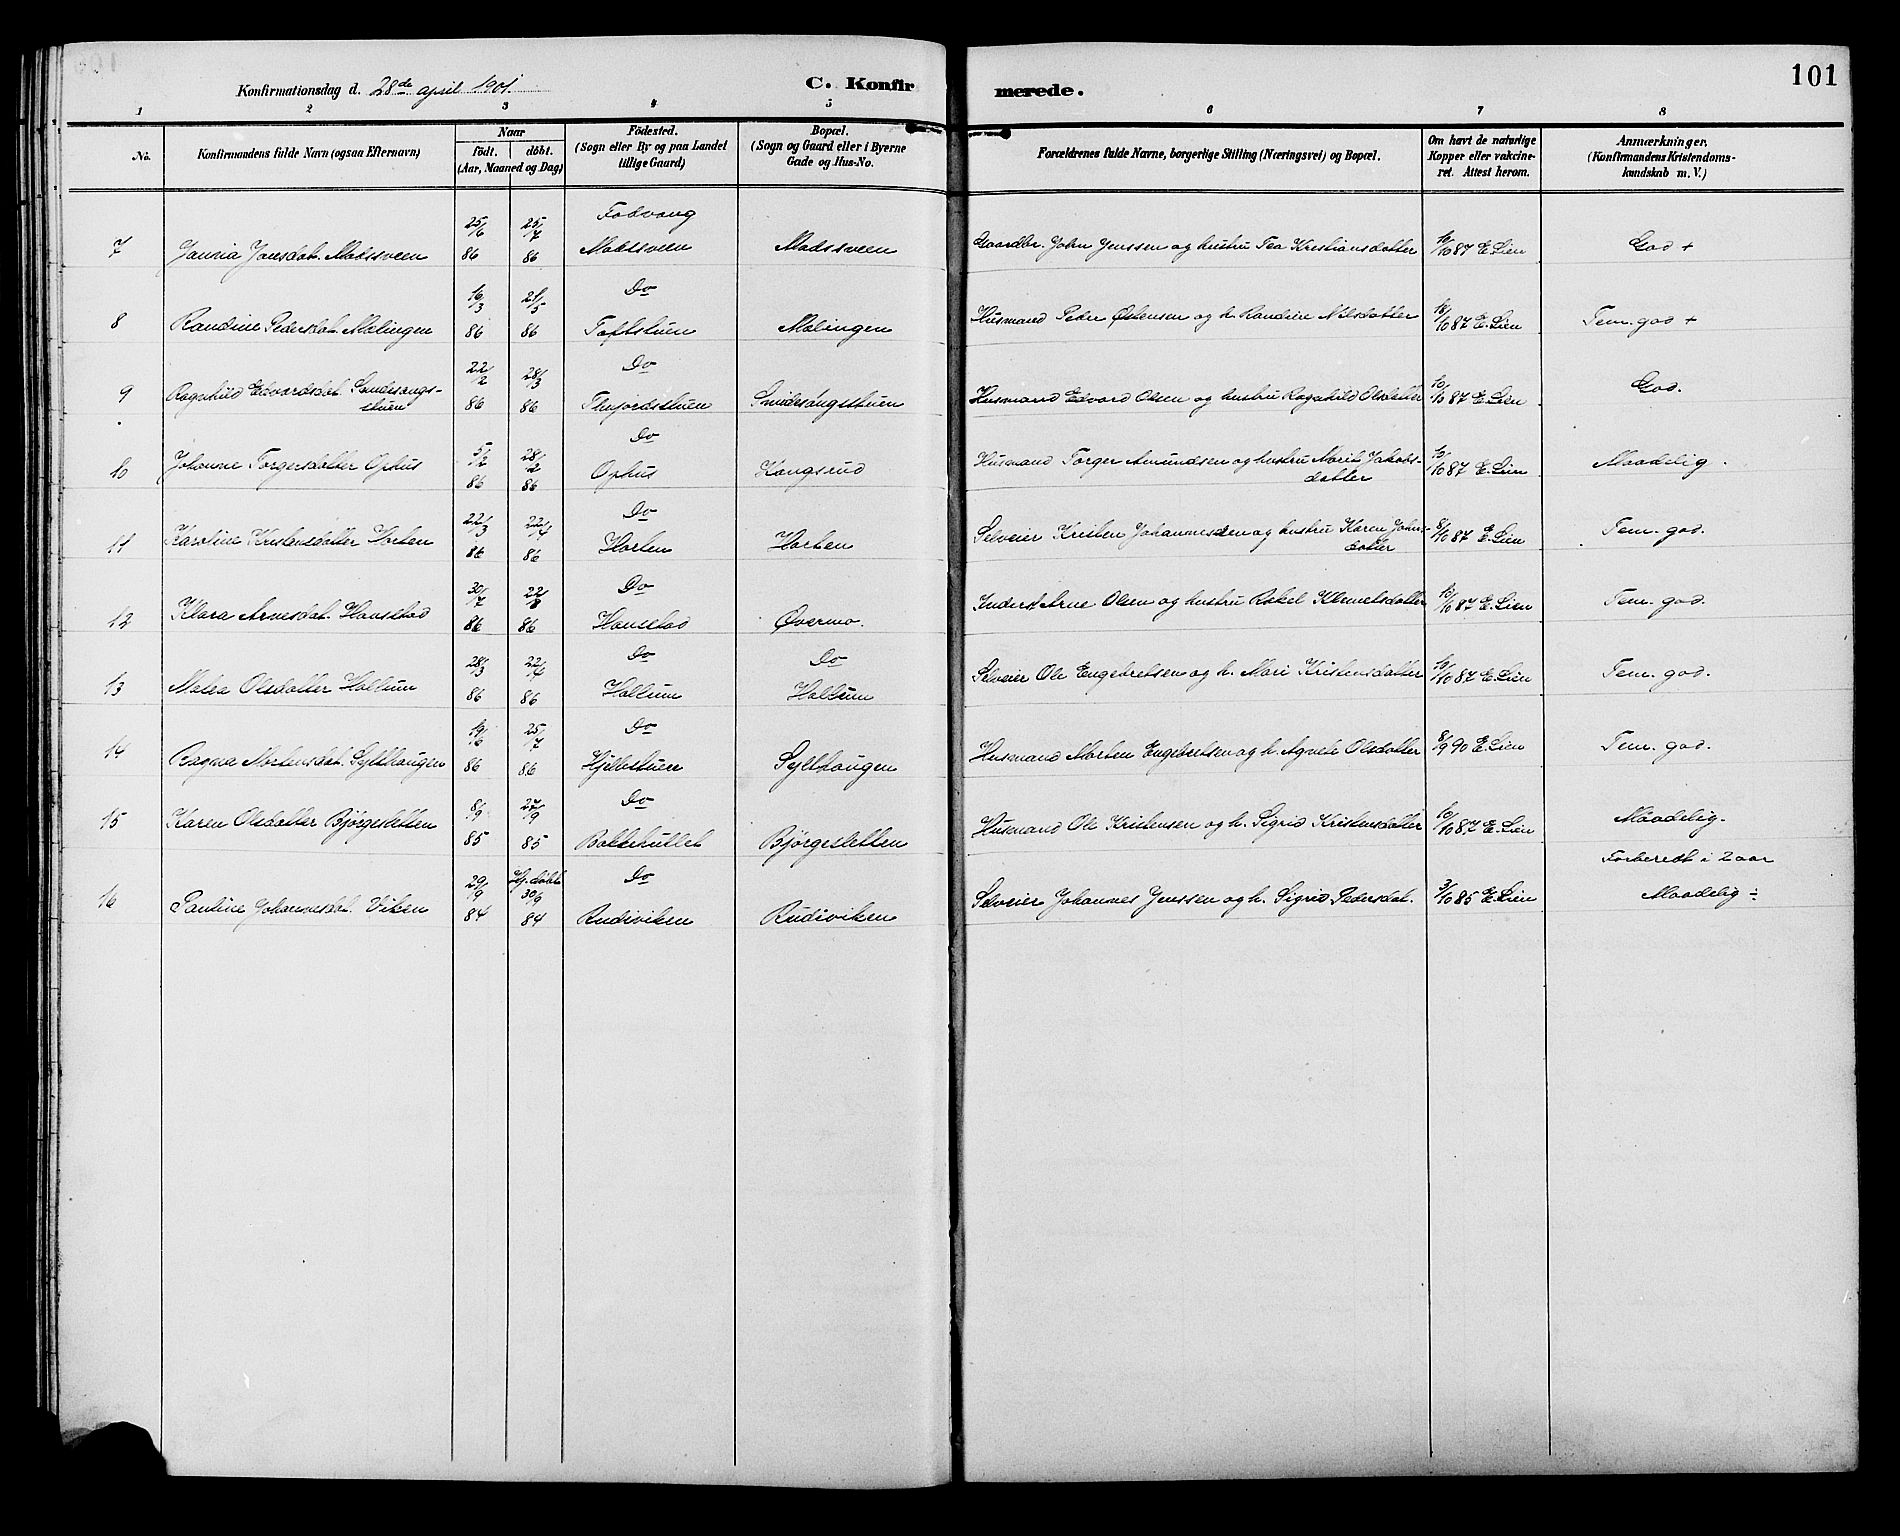 101
Konfirmationsdag d. 28de april 1901.
C. Konfirmerede.
1 2 3 4 5 6 7 8
No.
Konfirmandens fulde Navn (ogsaa Efternavn)
Naar
födt. döbt.
(Aar, Maaned og Dag)
Födested.
(Sogn eller By og paa Landet
tillige Gaard)
Bopæl.
(Sogn og Gaard eller i Byerne
Gade og Hus-No.
Forældrenes fulde Navne, borgerlige Stilling (Næringsvei) og Bopæl.
Om havt de naturlige
Kopper eller vakcine-
ret. Attest herom.
Anmærkninger,
(Konfirmandens Kristendoms-
kundskab m. V.)
25/6 25/7 Fodvang
7 Jonsdat. Madssveen 86 86 Madssveen Madssveen Gaardbr. John Jenssen og hustru Tea Kristiansdatter 10/10 87 E. Lien God +
16/3 21/5 Do
8 Randine Pedersdat. Mælingen 86 86 Toftstuen Mælingen Husmand Peder Østensen og h. Randine Nilsdatter 18/10 87 E. Lien Tem. god +
22/2 28/3 Do
9 Ragnhild Edvardsdat. Smidesangs-
stuen 86 86 Smidesangsstuen Husmand Edvard Olsen og hustru Ragnhild Olsdatter 10/10 87 E. Lien God.
5/2 28/2 Do
10 Johanne Torgersdatter Ophus 86 86 Ophus Kongsrud Husmand Torger Amundsen og hustru Marit Jakobs-
datter 10/10 87 E. Lien Maadelig.
22/3 22/4 Do
11 Karoline Kristensdatter Horten 86 86 Horten Horten Selveier Kristen Johannessen og hustru Karen Johns-
datter 8/10 87 E. Lien Tem. god.
30/7 22/8 Do
12 Klara Arnesdat. Haustad 86 86 Øvermo. Inderst Arne Olsen og hustru Rakel Klemetsdatter 10/10 87 E. Lien Tem. god.
28/3 22/4 Do Do
13 Matea Olsdatter Hollum 86 86 Hollum Hollum Selveier Ole Engebretsen og h. Mari Kristensdatter 10/10 87 E. Lien Tem. god.
19/6 25/7 Do
14 Ragna Mortensdat. Sylthaugen 86 86 Sylthaugen Husmand Morten Engebretsen og h. Agnete Olsdatter 8/9 90 E. Lien Tem. god.
8/9 27/9 Do
15 Karen Olsdatter Björgesletten 85 85 Bakkehullet Björgesletten Husmand Ole Kristensen og h. Sigrid Kristensdatter 10/10 87 E. Lien Maadelig.
29/9 Hj. döbt 30/9 Do Forberedt i 2 aar
16 Pauline Johannesdat. Viken 84 84 Rudiviken Rudiviken Selveier Johannes Jenssen og h. Sigrid Pedersdat. 3/10 85 E. Lien Maadelig ÷